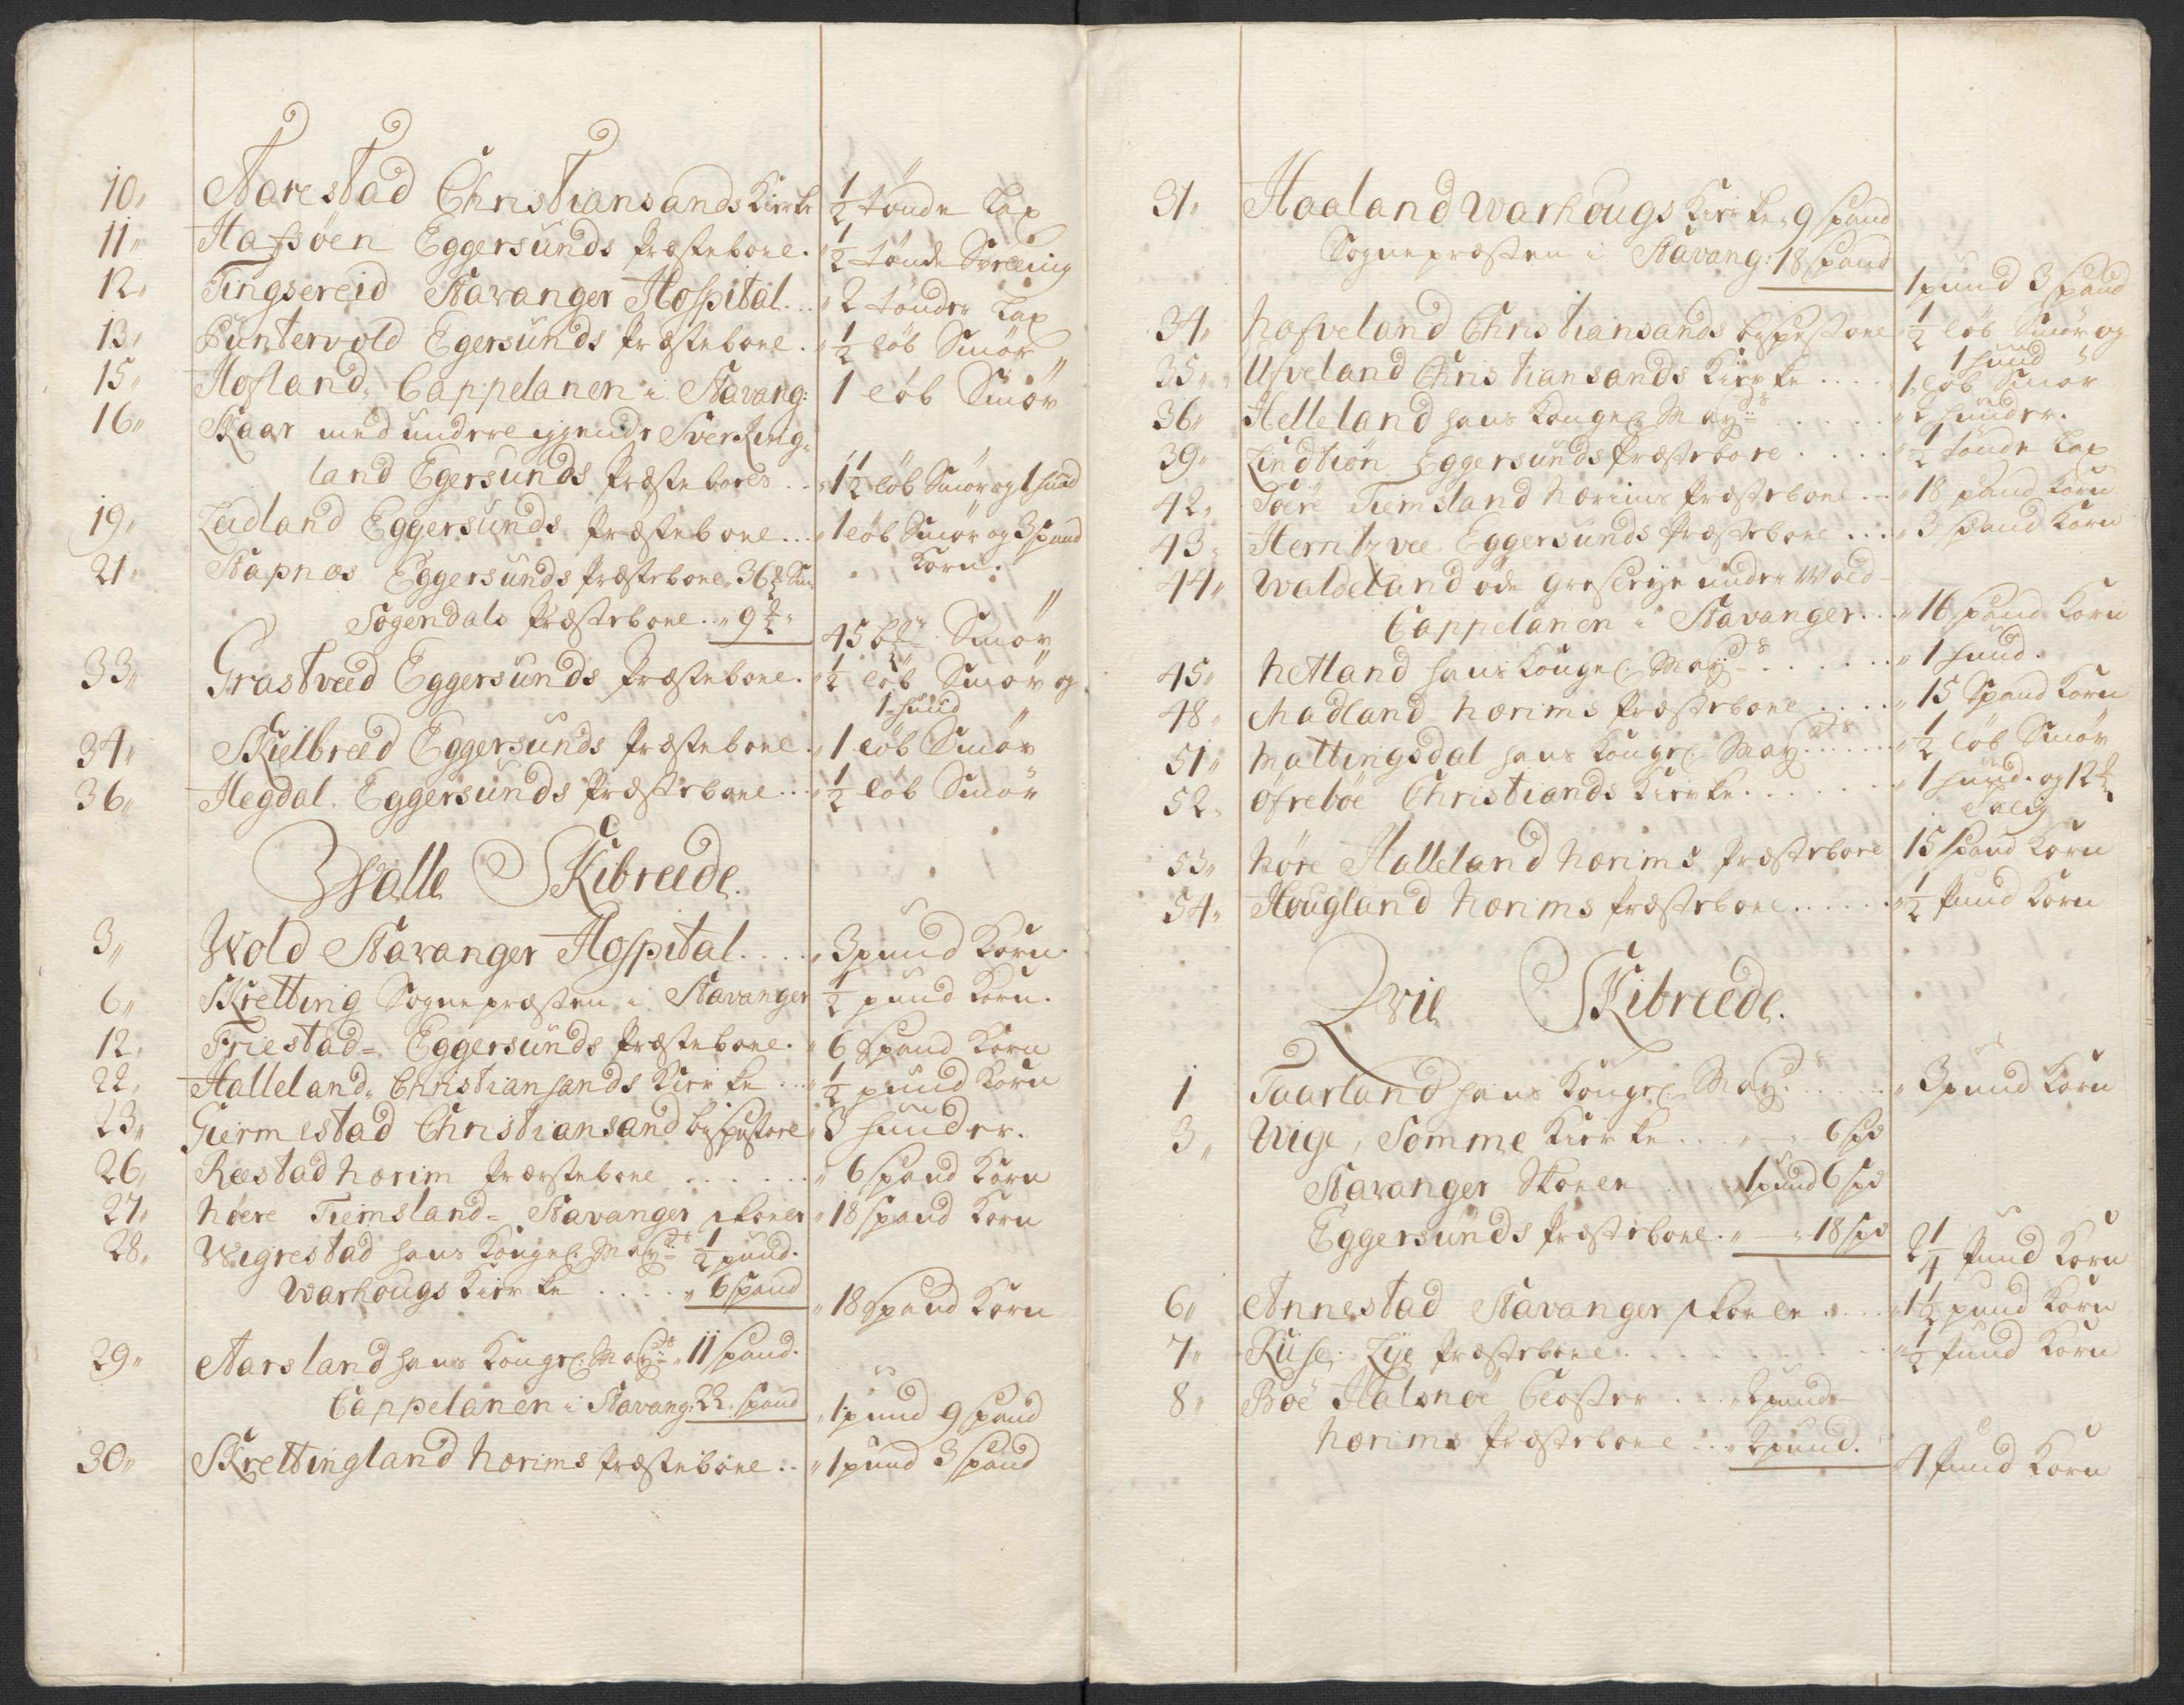 10„ Aarestad Christiansands Kierke ½ tönde Lax
11„ Hafsöen Eggersunds Præsteboel. ½ tönde
12„ Tingsereid Stavanger Hospital... „2 tönder Lax
13„ Puntervold Egersunds Præsteboel. „½ löb Smör
15„ Hofland, Cappelanen i Stavang: 1 löb Smör
16„ Skaar med underliggende Sverling-
land Egersunds Præsteboels.. „1½ löb Smör og 1 hud
19„ Leidland Eggersunds Præsteboel... „1 löb Smör og 3 spand
Korn.
21„ Stapnæs Eggersunds Præsteboel 36
Sogendals Præsteboel. „9
45 Smör
33„ Grastveed Eggersunds Præsteboel. „½ löb Smör og
1 huud
34„ Skielbreed Eggersunds Præsteboel. „1 löb Smör
36„ Hegdal. Eggersunds Præsteboel... „½ löb Smör
Hvalle Skibreede.
3„ Wold Stavanger Hospital.... „3 pund Korn.
6„ Skretting Sognepræsten i Stavanger ½ pund Korn.
12„ Friestad= Eggersunds Præsteboel. „6 Spand Korn
22„ Halleland, Christiansands Kierke.. „½ pund Korn
23„ Giermestad Christiansand bispestoel „3 huuder.
26„ Reestad Hærim Præsteboel...... „6 spand Korn
27„ Høere Tiemsland= Stavanger skoler „18 spand Korn
28„ Wigrestad hans Kongel: May:ds ½ pund.
Warhougs Kierke.... „6 spand
„18 spand Korn
29„ Aarsland hans Kongel: May:ds „11 spand.
Cappelanen i Stavang: 22 spand „1 pund 9 spand
30„ Skrettingland Hærims Præsteboel.. „1 pund 3 spand
31„ Haaland Warhougs Kierke 9 spand
Sognepræsten i Stavang: 18 spand
1 pund 3 spand
34„ Hafveland Christiansands bispestoel ½ löb Smör og
1 huud
35„ Ufveland Christiansands Kierke.... „1 löb Smör
36„ Helleland hans Kongel: May:ds...... „2 huuder.
39„ Lindtiön Eggersunds Præsteboel.... „½ tönde Lax
42„ Tiemsland Hærims Præsteboel... „18 spand Korn
43„ Herritzvee Eggersunds Præsteboel... „3 spand Korn
44„ Waldeland öde greslerje under Wold-
Cappelanen i Stavanger... „16 spand Korn
45„ Hetland hans Kongel: May:ds...... „1 huud.
48„ Madland Hærims Præsteboel.... „15 Spand Korn
51„ Mattingsdal hans Kongel: May:ds..... „½ löb Smör
52„ Øfrebøe Christiands Kierke...... „1 huud. og 12
53„ Høre Halleland Hærims Præsteboel 15 spand Korn
54„ Hougland Hærims Præsteboel...... „½ Pund Korn
Qvie Skibreede.
1 Taarland hans Kongel: May:ds..... „3 pund Korn
3„ Wige, Somme Kierke.... „— „6 spd
Stavanger Skoler 1 pund 6 spd
Eggersunds Præsteboel. „— „18 spd
2¼ Pund Korn
6„ Annestad Stavanger skoler.... „1½ pund Korn
7„ Riise, Lye Præsteboel......... „½ Pund Korn
8„ Böe Halsnöe Closter... „2 pund
Hærims Præsteboel... „2 pund.
4 Pund Korn